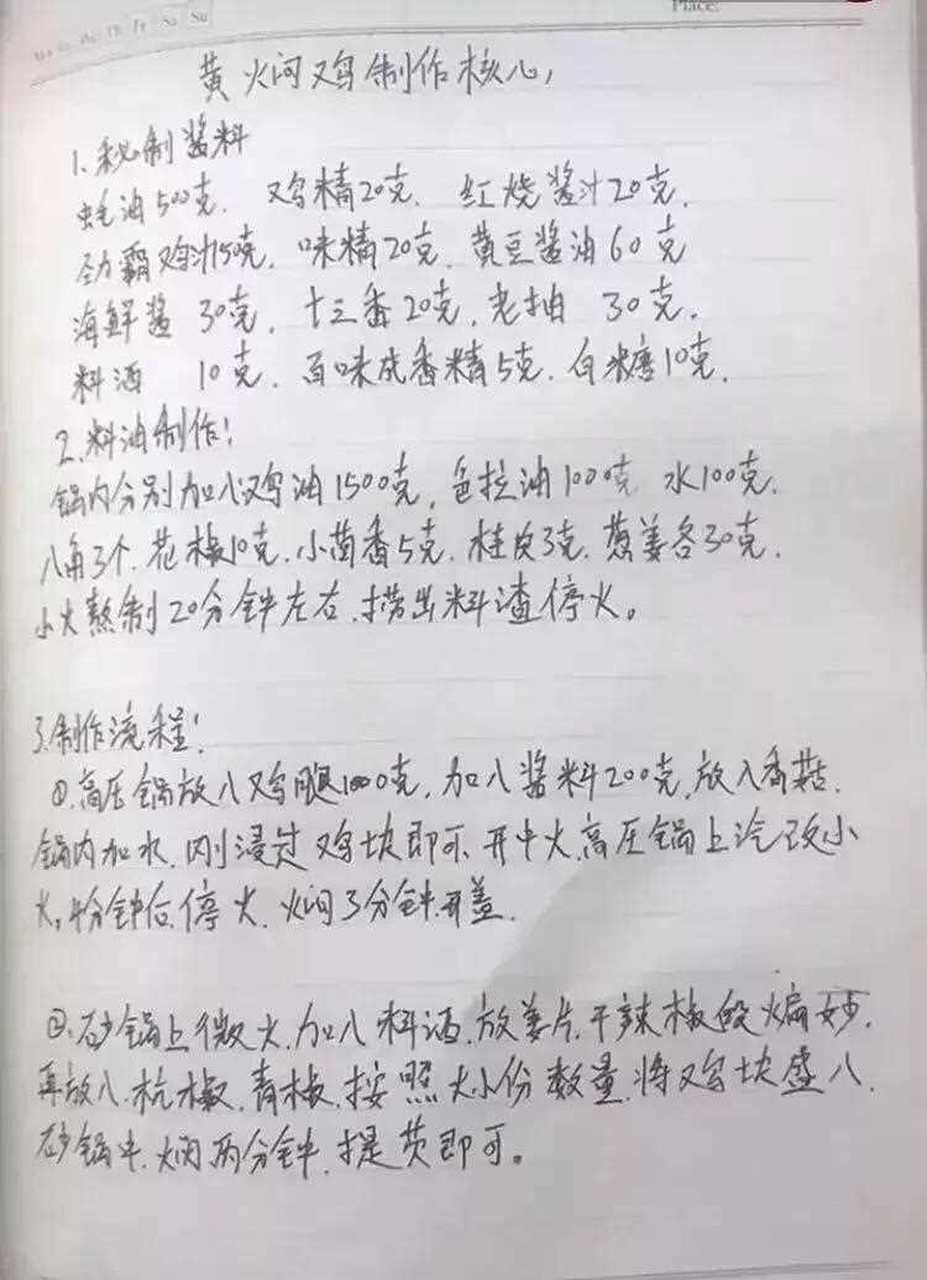 Mo Tu We Th Fr Sa Su
Place:
黄焖鸡制作核心,
1.秘制酱料
蚝油500克. 鸡精20克. 红烧酱汁20克.
劲霸鸡汁150克. 味精20克. 黄豆酱油60克
海鲜酱 30克. 十三香20克. 老抽 30克.
料酒 10克. 百味成香精5克. 白糖10克.
2.料油制作!
锅内分别加入鸡油1500克, 色拉油1000克 水100克.
八角3个. 花椒10克. 小茴香5克. 桂皮3克. 葱姜各30克.
小火熬制20分钟左右. 捞出料渣停火。
3.制作流程!
①.高压锅放入鸡腿1000克, 加入酱料200克, 放入香菇.
锅内加水. 刚浸过鸡块即可. 开中火, 高压锅上汽改小
火, 4分钟后. 停火. 焖3分钟. 开盖.
②.砂锅上微火. 加入料酒. 放姜片. 干辣椒段煸炒.
再放入. 杭椒. 青椒. 按照大小份数量. 将鸡块盛入.
砂锅中. 焖两分钟. 提货即可。